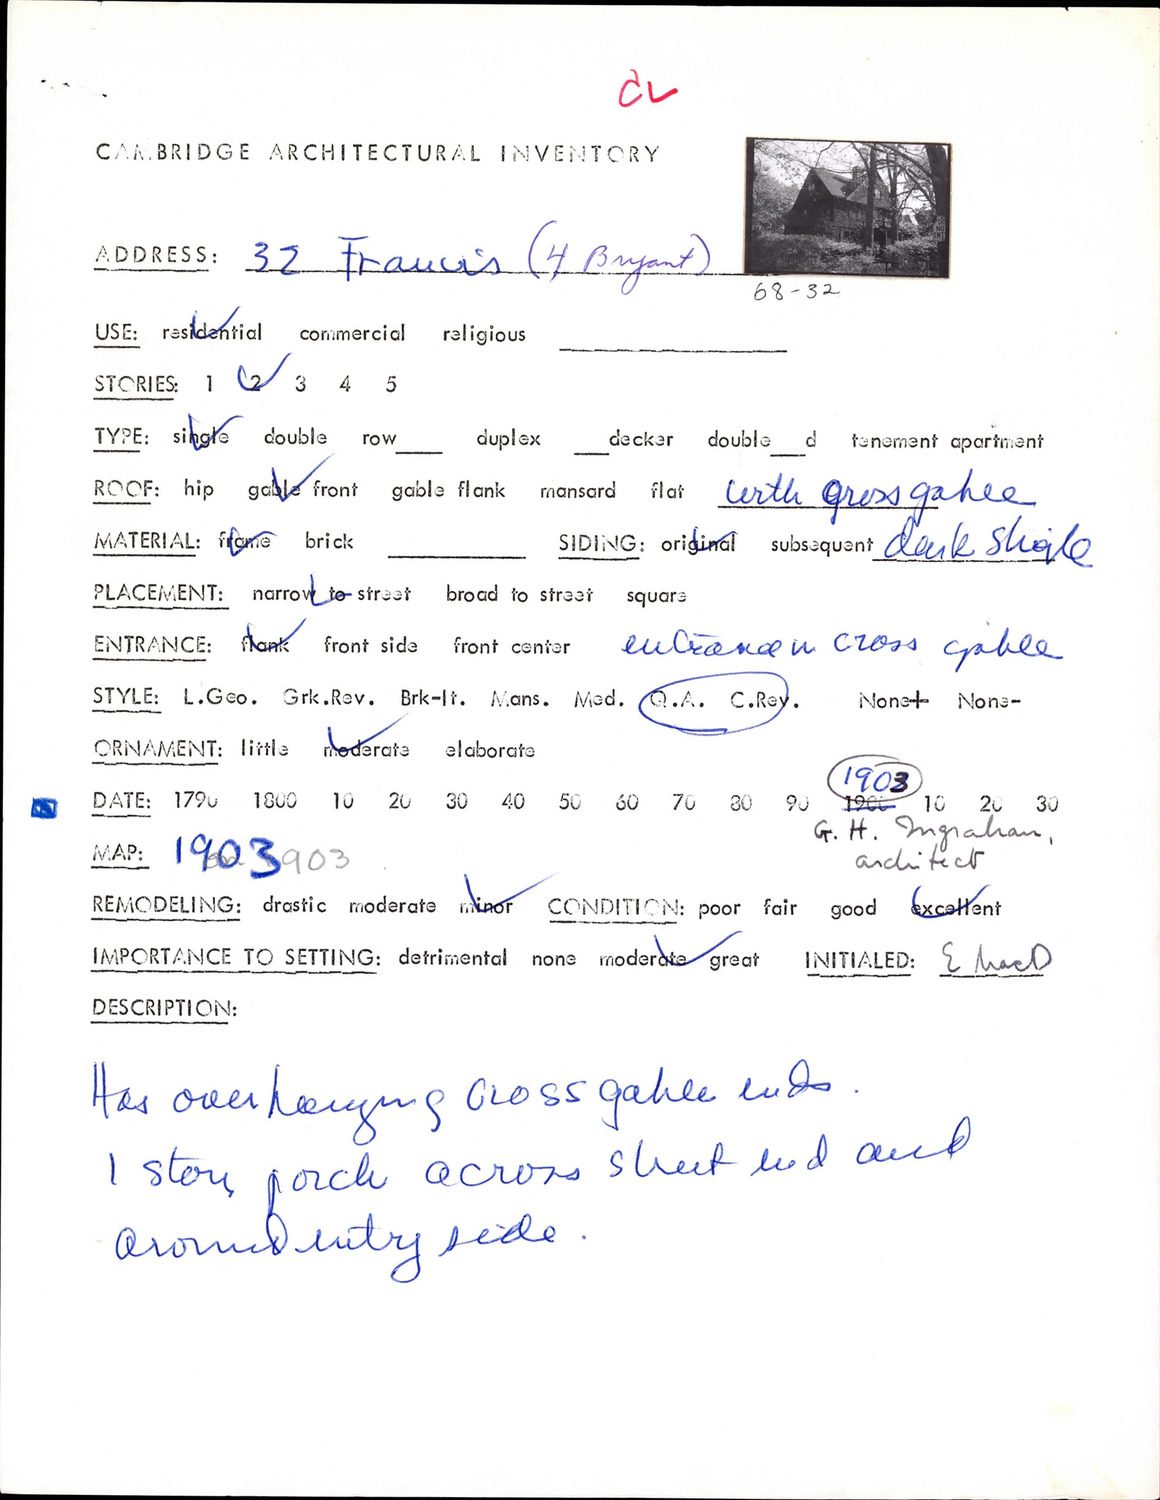 CAMBRIDGE ARCHITECTURAL INVENTORY
ADDRESS: 32 Francis (4 Bryant)
68-32
USE: residential commercial religious
STORIES: 1 2 3 4 5
TYPE: single double row___ duplex ___decker double___d tenement apartment
ROOF: hip gable front gable flank mansard flat with cross gable
MATERIAL: frame brick ___ SIDING: original subsequent dark shingle
PLACEMENT: narrow to street broad to street square
ENTRANCE: flank front side front center entrance in cross gable
STYLE: L.Geo. Grk.Rev. Brk-It. Mans. Med. Q.A. C.Rev. None+ None-
ORNAMENT: little moderate elaborate
1903
DATE: 1790 1800 10 20 30 40 50 60 70 80 90 1900 10 20 30
G. H. Ingraham,
architect
MAP: 1903 1903
REMODELING: drastic moderate minor CONDITION: poor fair good excellent
IMPORTANCE TO SETTING: detrimental none moderate great INITIALED: E MacD
DESCRIPTION:
Has overhanging cross gable ends.
1 story porch across street end and
around entry side.